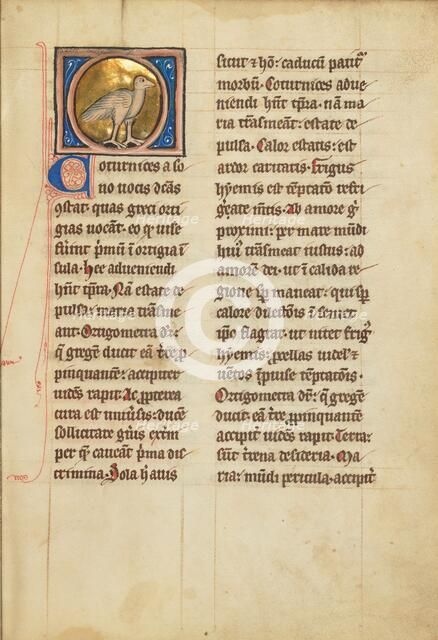 Coturnices a so
no uocis dcãs
ꝯstat. quas greci orti
gias uocãt. eo ꝙ uise
fuerint p̃mũ ĩ ortigia ĩ
sula. Hec adueniendi
hñt tp̃ra. Nã estate de
pulsa. maria trãsme
ant. Ortigometra dr̃.
q̃ gregẽ ducit eã tr̃e ꝓ
pinquantẽ. accipiter
uidẽs rapit. Ac ꝓpterea
cura est uniũsis. ducẽ
sollicitare gñis exter
per q̃ caueãt p̃ma dis
crimina. Sola hẽc auis
sicut ⁊ hõ. caducũ patit̃
morbũ. Coturnices adue
niendi hñt tp̃ra. nã ma
ria trãsmeãnt. estate de
pulsa. Calor estatis. est
ardor caritatis. Frigus
hyemis est teptacõ̃ refri
g̃eate mẽtis. Ab amore g̃
proximi. per mare mũdi
huĩ trãsmeat iustus. ad
amorẽ dei. ut ĩ calida re
gione sp̃ maneat. qui sp̃
calore dilectõis ĩ semet
ip̃o flagrat. ut uitet frig̃
hyemis. ꝓcellas uidel⁊
⁊ uẽtos ĩpuise teptacõnis.
Ortigometra dr̃. q̃ gregẽ
ducit. eã tr̃e ꝓpinquantẽ
accipit̃ uidẽs rapit. Terra.
sũt tr̃ena desideria. Ma
ria. mũdi pericula. accipit̃
Heritage